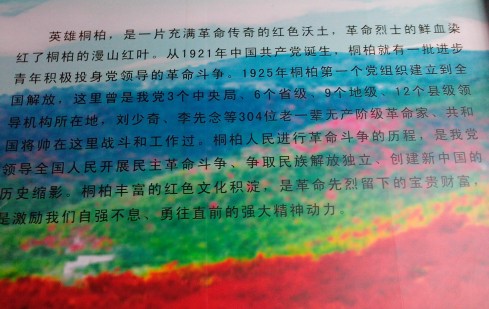 英雄桐柏，是一片充满革命传奇的红色沃土，革命烈士的鲜血染
红了桐柏的漫山红叶。从1921年中国共产党诞生，桐柏就有一批进步
青年积极投身党领导的革命斗争。1925年桐柏第一个党组织建立到全
国解放，这里曾是我党3个中央局、6个省级、9个地级、12个县级领
导机构所在地，刘少奇、李先念等304位老一辈无产阶级革命家、共和
国将帅在这里战斗和工作过。桐柏人民进行革命斗争的历程，是我党
领导全国人民开展民主革命斗争、争取民族解放独立、创建新中国的
历史缩影。桐柏丰富的红色文化积淀，是革命先烈留下的宝贵财富，
是激励我们自强不息、勇往直前的强大精神动力。